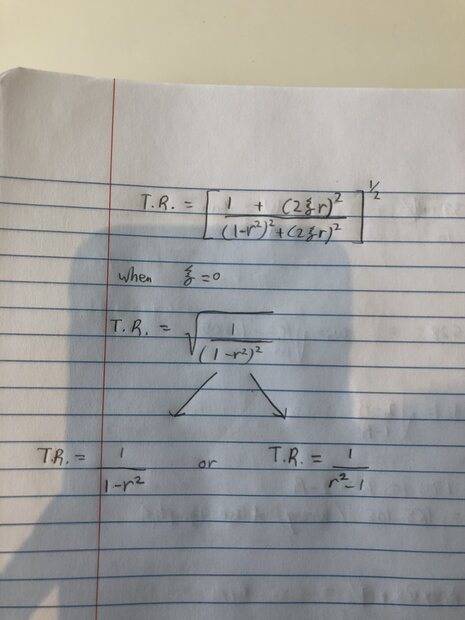 T.R. = [ (1 + (2ξr)²) / ((1-r²)² + (2ξr)²) ]^1/2
when ξ = 0
T.R. = √(1 / (1-r²)²)
T.R. = 1 / (1-r²) or T.R. = 1 / (r²-1)